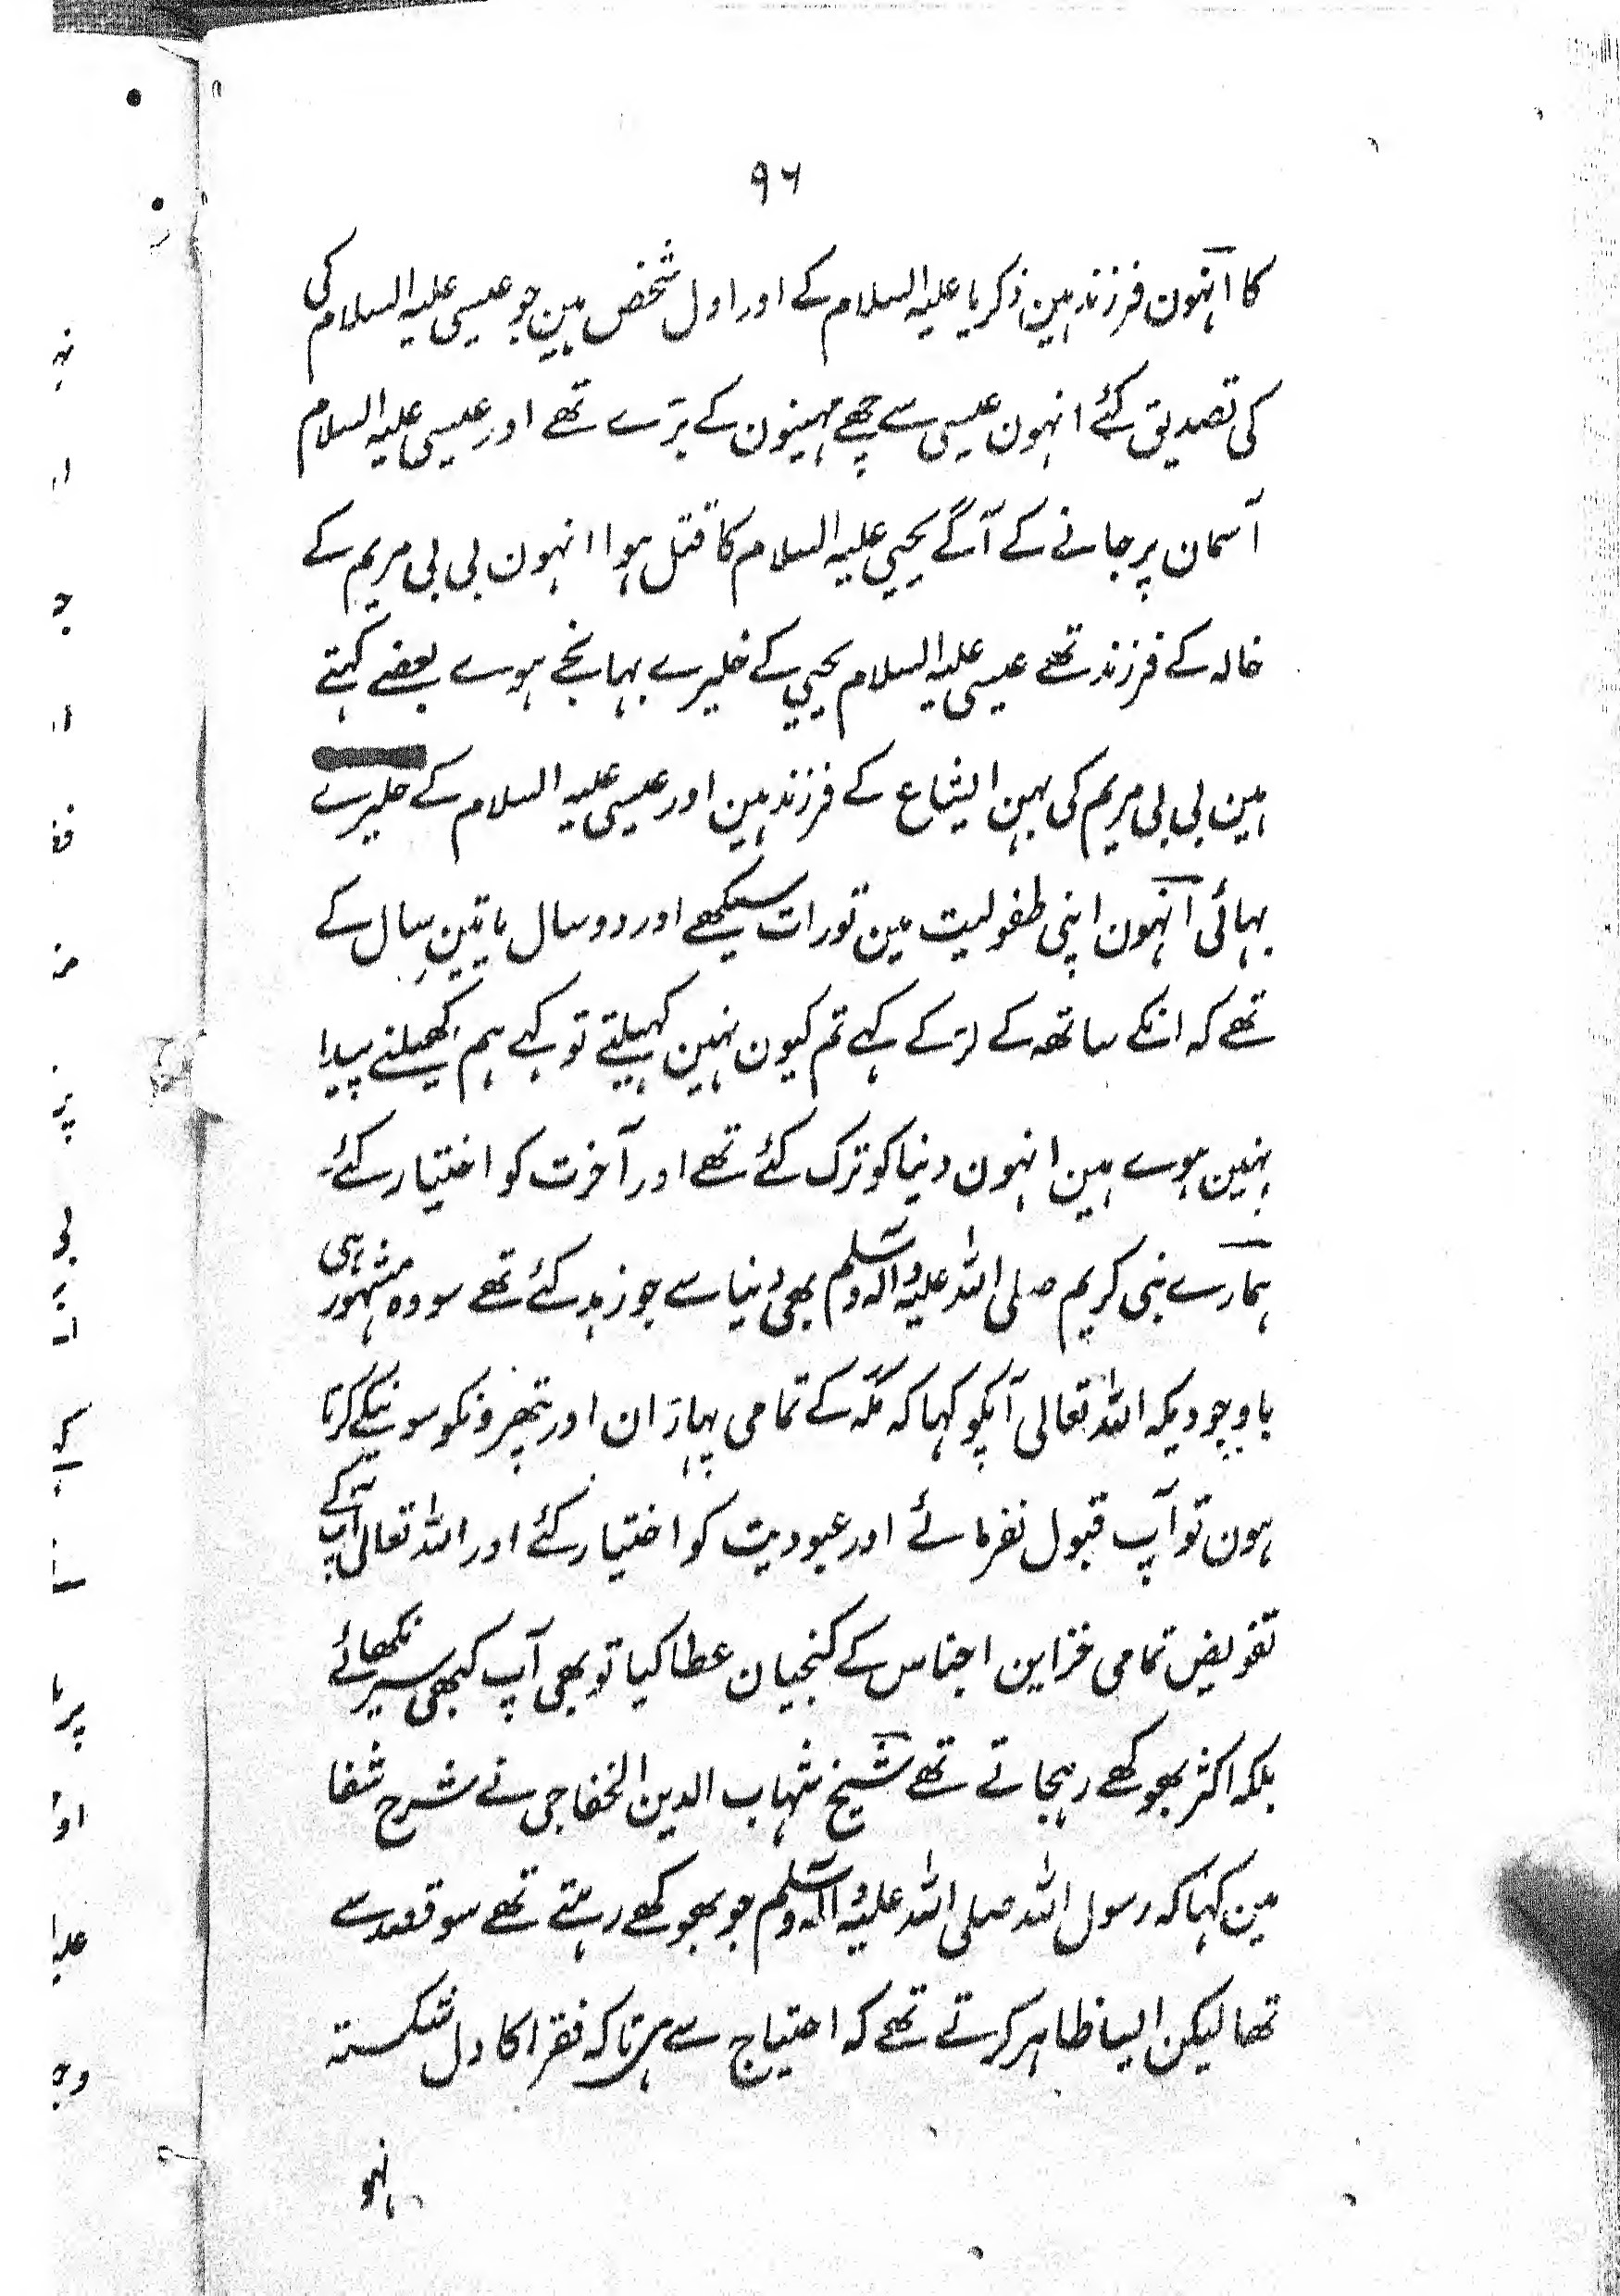 ۹۶
کا انہون فرزند ہین ذکریا علیہ السلام کے اور اول شخص ہین جو عیسی علیہ السلام کی
کی تصدیق کئے انہون عیسی سے چھے مہینون کے بڑے تھے اور عیسی علیہ السلام
آسمان پر جانے کے آگے یحیی علیہ السلام کا قتل ہوا انہون بی بی مریم کے
خالہ کے فرزند تھے عیسی علیہ السلام یحیی کے خلیرے بہانجے ہوے بعضے کہتے
ہین بی بی مریم کی بہن ایشاع کے فرزند ہین اور عیسی علیہ السلام کے خلیرے
بہائی انہون اپنی طفولیت مین تورات سیکھے اور دو سال یا تین سال کے
تھے کہ انکے ساتھہ کے لڑکے کہے تم کیون نہین کہیلتے تو کہے ہم کھیلنے پیدا
نہین ہوے ہین انہون دنیا کو ترک کئے تھے اور آخرت کو اختیار کئے
ہمارے نبی کریم صلی اللہ علیہ وآلہ وسلم بھی دنیا سے جو زہد کئے تھے سو وہ مشہور ہی
باوجودیکہ اللہ تعالی آپکو کہا کہ مکہ کے تمامی پہاڑان اور پتھرونکو سونیکے کرتا
ہون تو آپ قبول نفرمائے اور عبودیت کو اختیار کئے اور اللہ تعالی آپ کے
تفویض تمامی خزاین اجناس کے کنجیان عطا کیا تو بھی آپ کبھی سیر نکھائے
بلکہ اکثر بھوکھے رہجاتے تھے شیخ شہاب الدین الخفاجی نے شرح شفا
مین کہا کہ رسول اللہ صلی اللہ علیہ وآلہ وسلم جو بھوکھے رہتے تھے سو قصد سے
تھا لیکن ایسا ظاہر کرتے تھے کہ احتیاج سے ہی تاکہ فقرا کا دل شکستہ
نہو